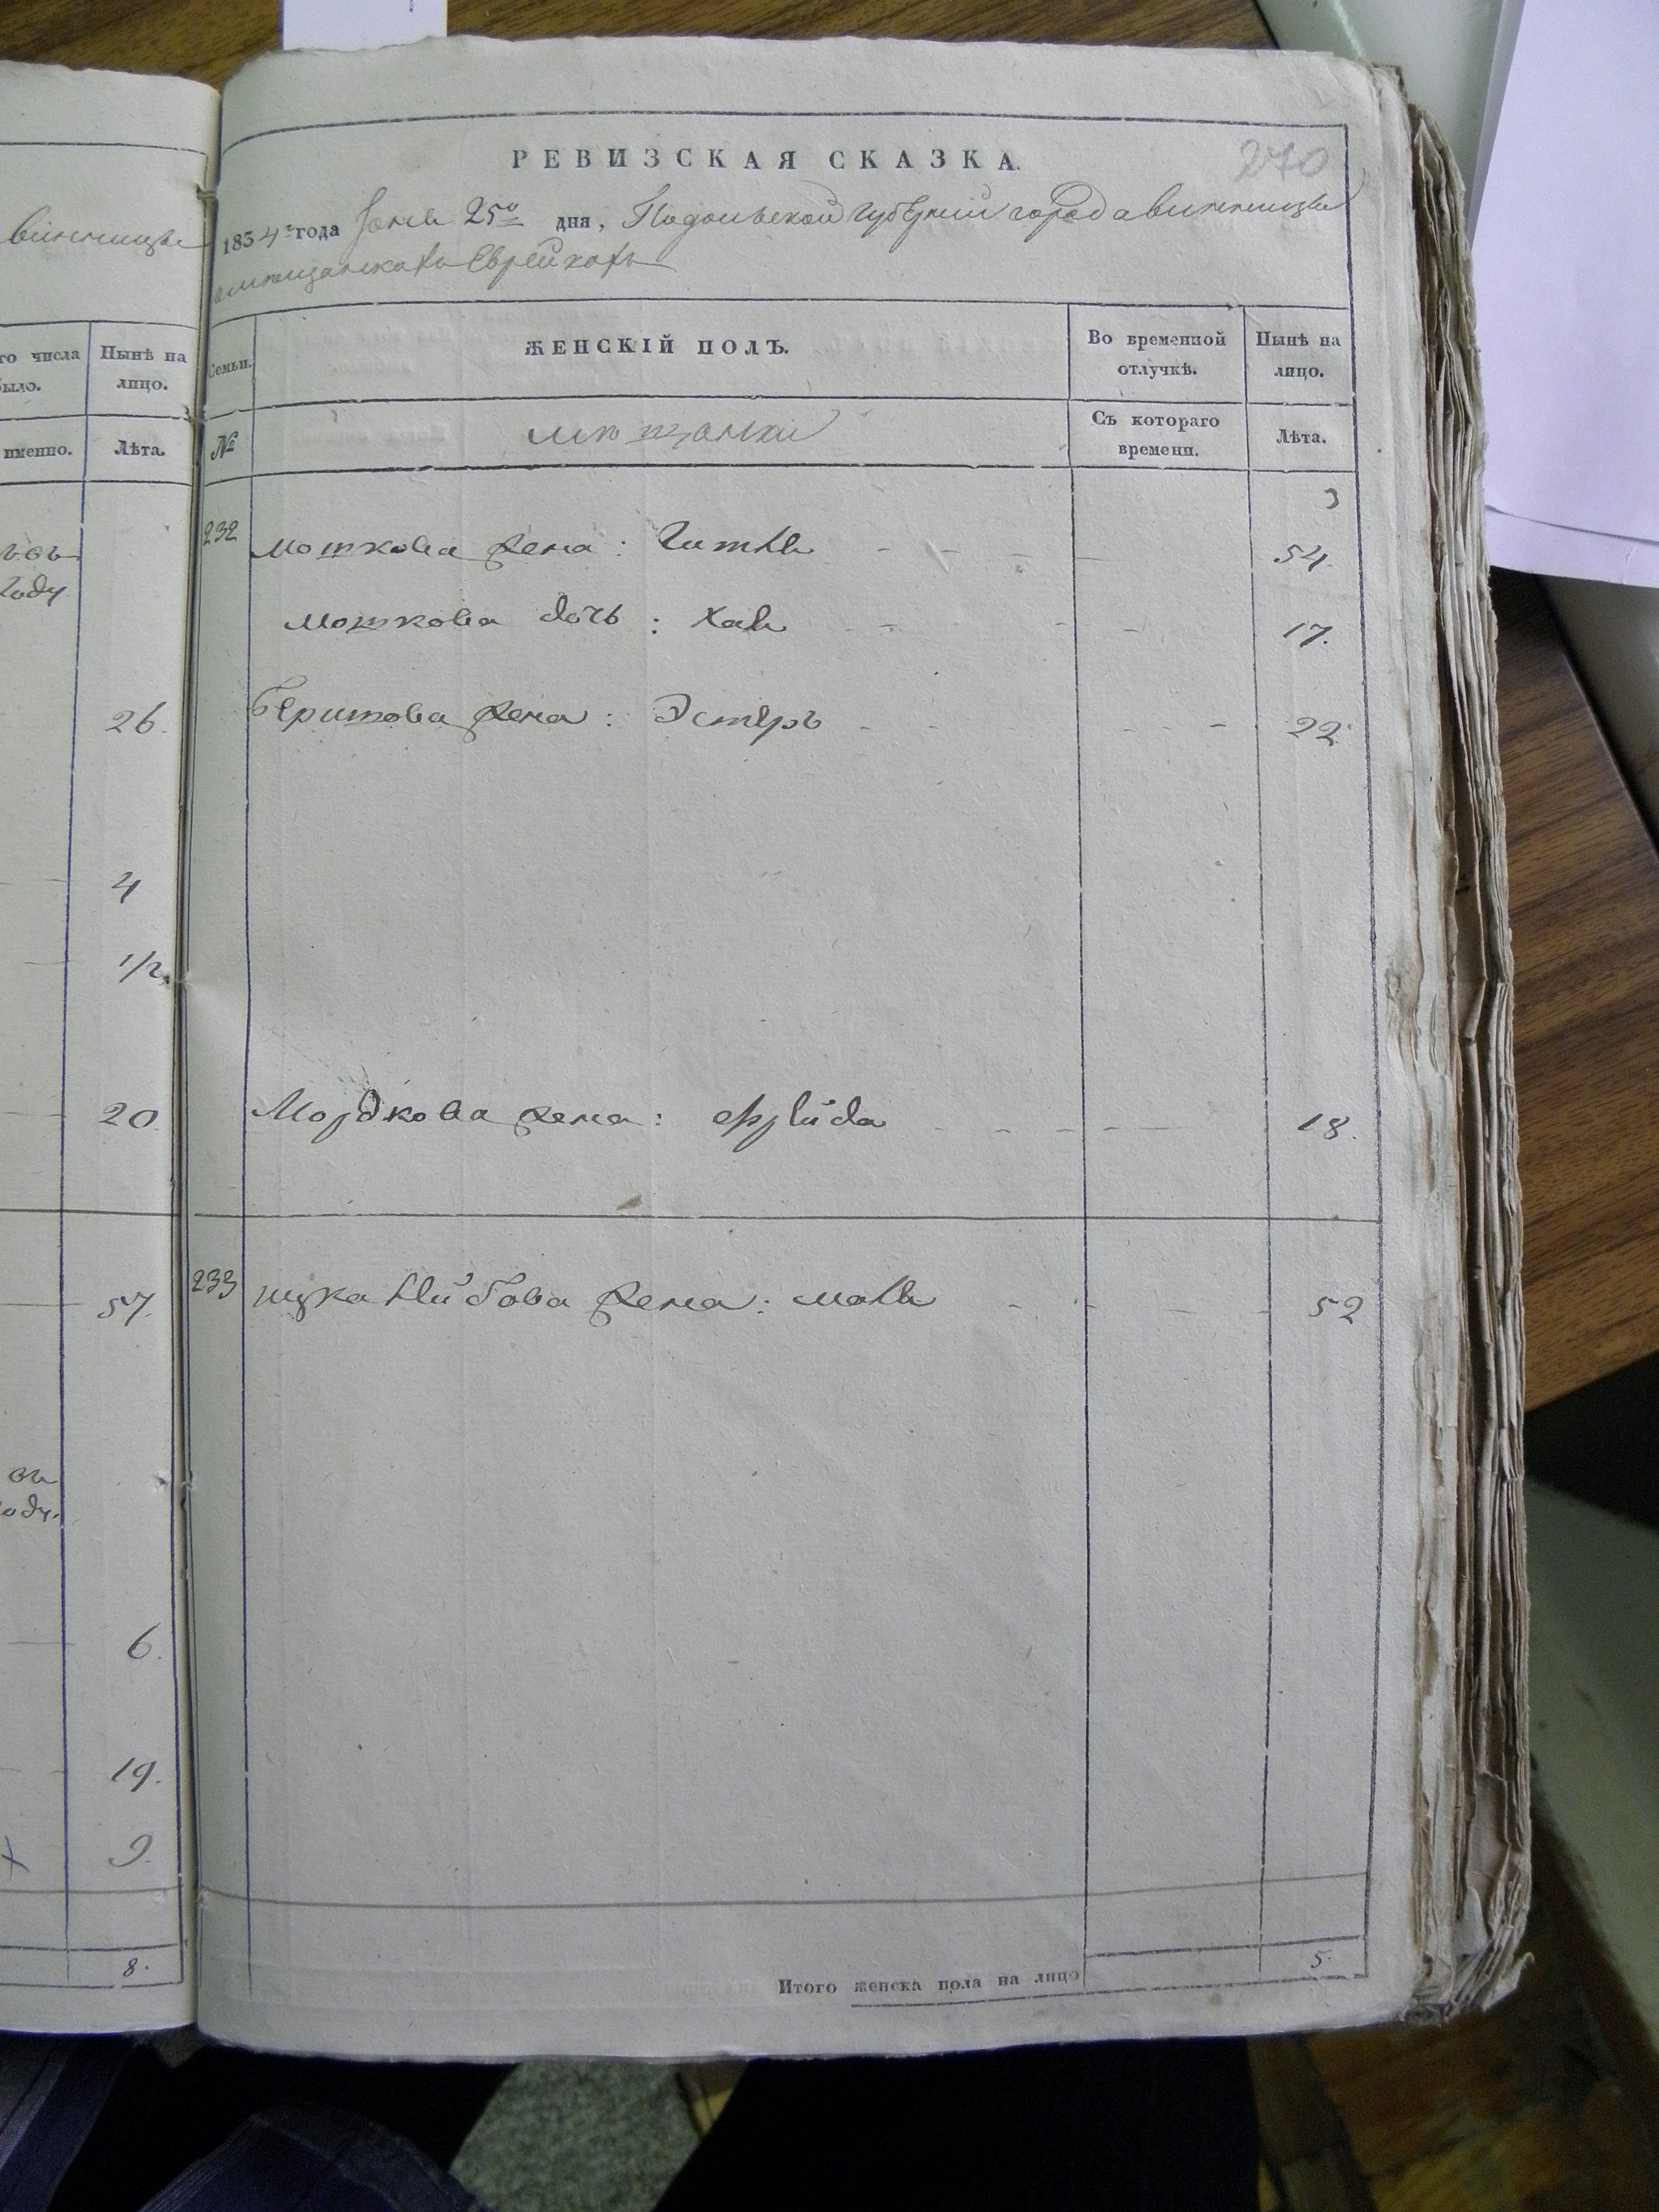 Винницы
го числа
было.
Нынѣ на
лицо.
именно.
Лѣта.
году
26.
4
1/2
20.
57.
въ
году.
6.
19.
9.
8.
270
РЕВИЗСКАЯ СКАЗКА.
1834го года Іюня 25го дня, Подольской Губерніи города Винницы
Еврейкахъ
Семьи.
ЖЕНСКІЙ ПОЛЪ.
Во временной
отлучкѣ.
Нынѣ на
лицо.
№
мѣщанки
Съ котораго
времени.
Лѣта.
3
232 Мошкова жена: Гитля 54.
Мошкова дочь: Хая 17.
Беришова жена: Эстеръ 22.
Мордкова жена: Фрейда 18.
233 жена: 52
Итого женска пола на лицо 5.